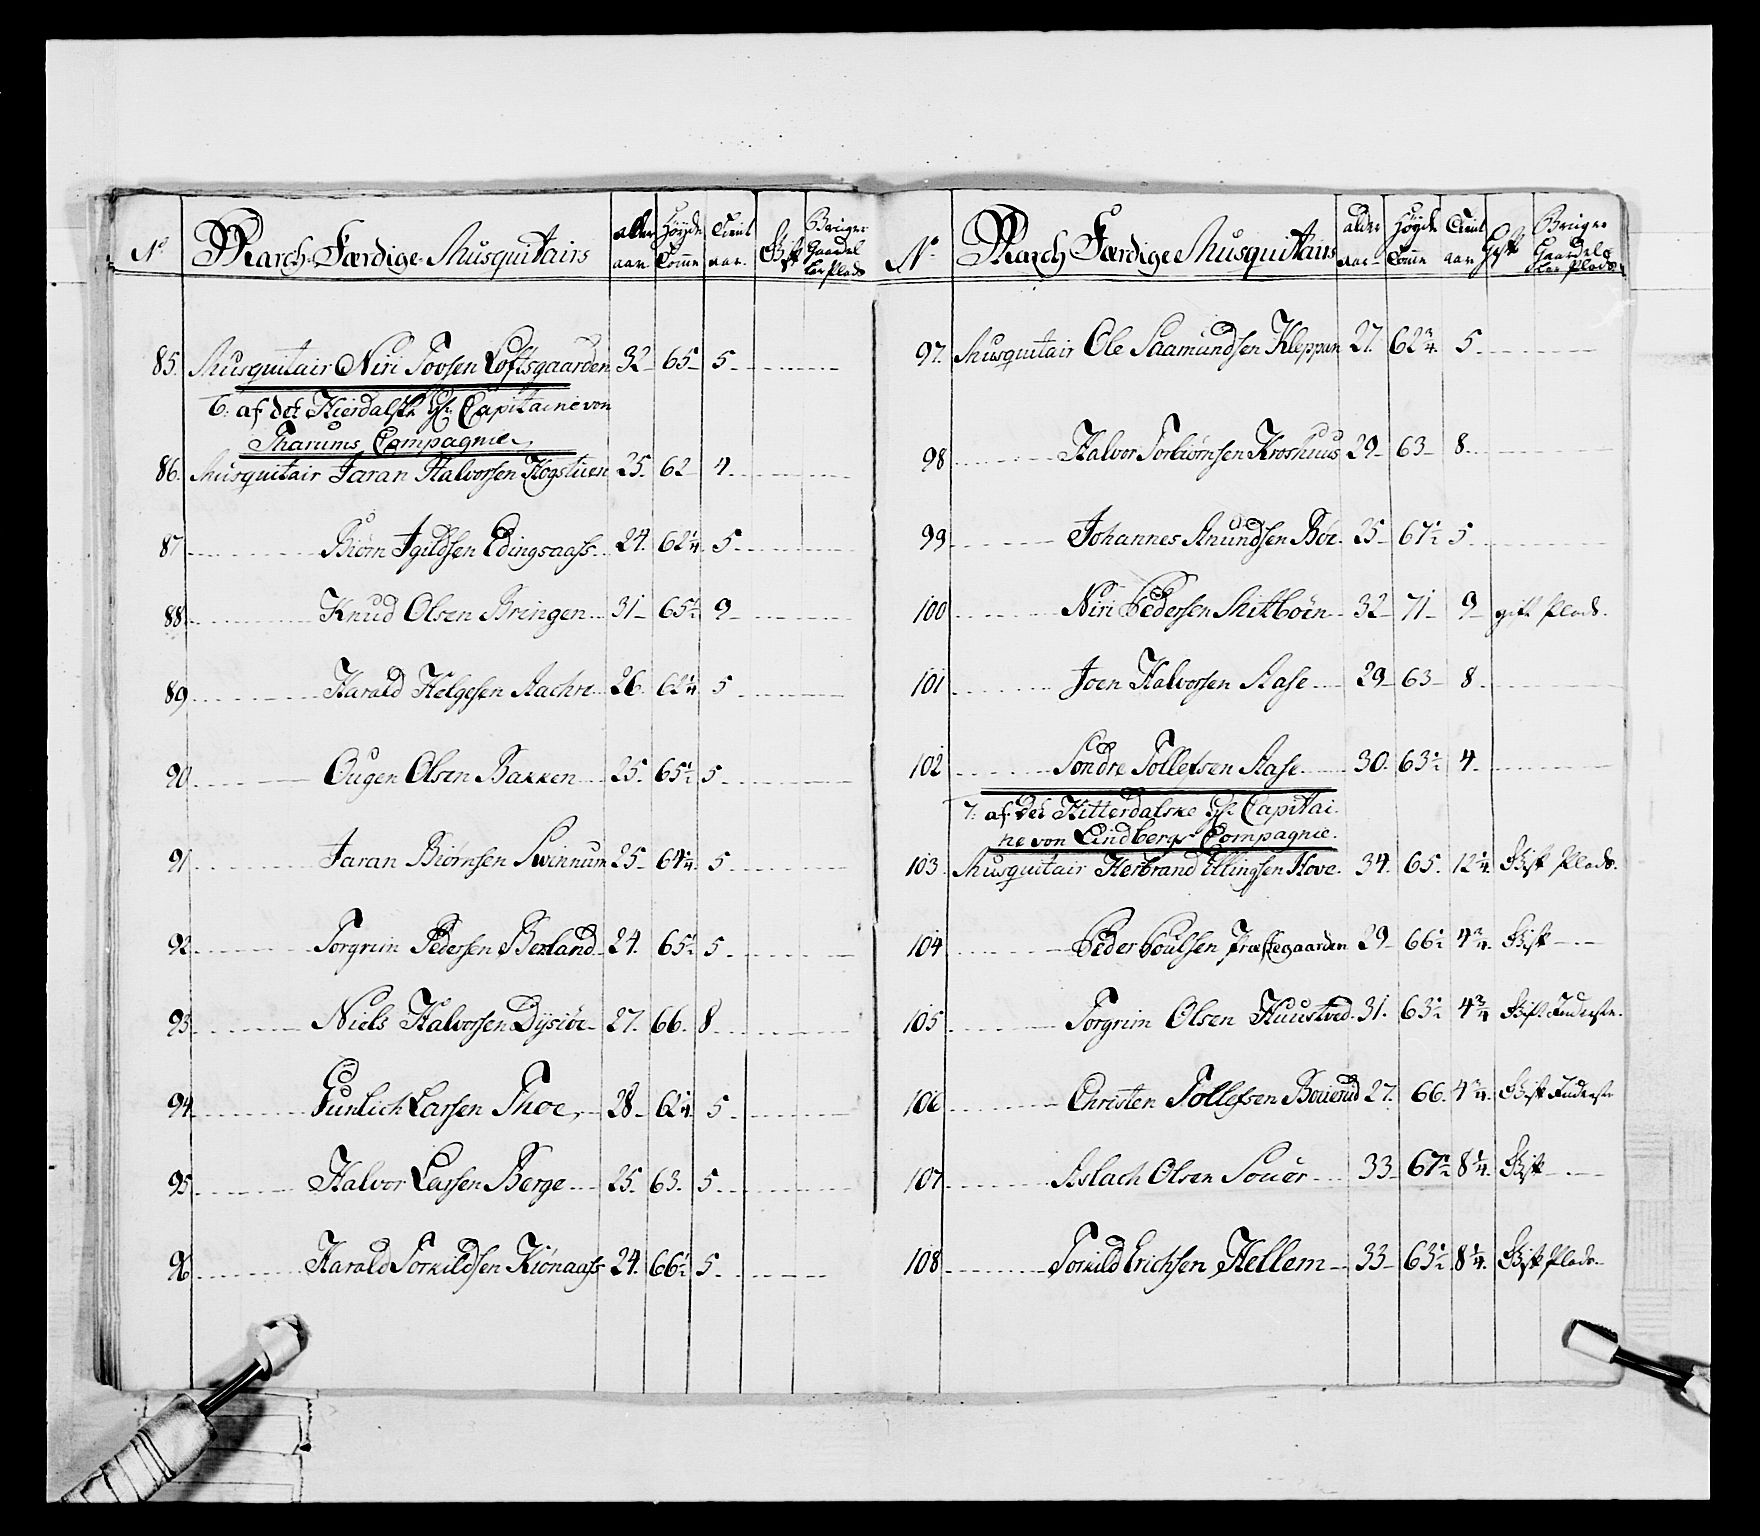 No March Færdige Musquitairs alder aar Høyde Tomme Tient aar Gift Bruger Gaardel ler Plads
85. Musquitair Niri Tovsen Loftsgaarden 32 65 5
6: af det Hierdalske Capitaine von
Tharums Compagnie
86. Musquitair Jaran Halvorsen Høgstuen 25. 62 4
87 Biørn Igildsen Edingsaass 24. 62 1/4 5
88. Knud Olsen Bringen 31 65 1/2 9
89 Harald Helgesen Aachre 26 62 1/4 5
90. Ougen Olsen Bakken 25. 65 1/2 5
91 Jaran Biørnsen Svinnum 25 64 1/4 5
92 Torgrim Pedersen Berland 24. 65 1/2 5
93. Niels Halvorsen Dysiøe 27. 66. 8
94 Gunlich Larsen Thoe, 28 62 1/4 5
95 Halvor Larsen Berge 25. 63. 5
96 Harald Torkildsen Kiönaass 24. 66 1/2 5
No March Færdige Musquitairs alder aar Høyde Tomme Tient aar Gift Bruger Gaardel eller Plads
97. Musquitair Ole Saamundsen Kleppen 27. 62 3/4 5
98 Halvor Torbiørnsen Kroshuus 29 63 8
99 Johannes Anundsen Böe 25 67 1/2 5
100 Niri Pedersen Mitböen 32 71 9 gift Plads.
101 Joen Halvorsen Aase 29 63 8
102 Söndre Tollefsen Aase 30. 63 1/2 4.
7: af det Hitterdalske Capitai
ne von Lindbergs Compagnie.
103. Musquitair Herbrand Ellingsen Hove 34. 65. 12 1/4 Gift Plads.
104 Peder Poulsen Præstegaarden 29 66 1/2 4 3/4 Gift
105 Torgrim Olsen Huustvéd 31. 63 1/2 4 3/4 Gift Inderste.
106 Christen Tollefsen 27. 66. 4 3/4 Gift Inderste
107 Aslach Olsen Souer 33 67 1/2 8 1/4 Gift
108 Torkild Erichsen Hellem 33 63 1/2 8 1/4 Gift Plads